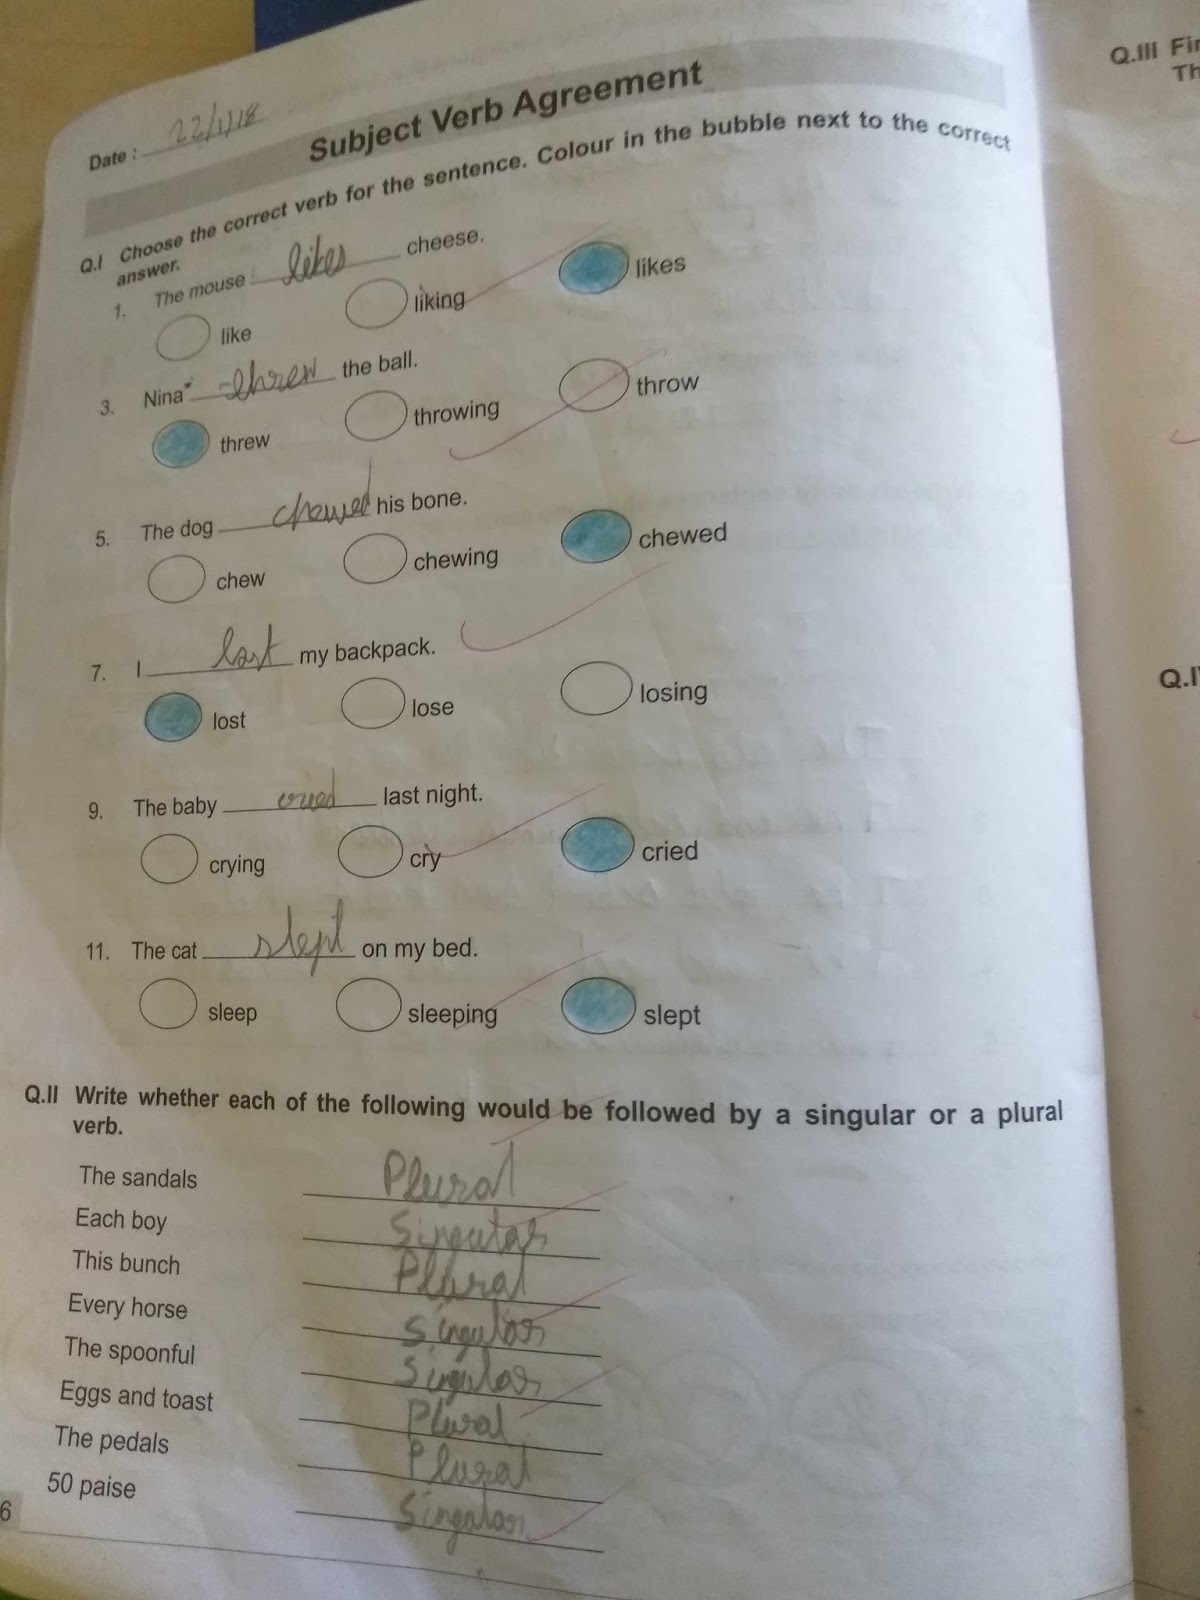 Date : 22/1/18
Subject Verb Agreement
Q.I Choose the correct verb for the sentence. Colour in the bubble next to the correct
answer.
1. The mouse likes cheese.
like liking likes
3. Nina threw the ball.
threw throwing throw
5. The dog chewed his bone.
chew chewing chewed
7. I lost my backpack.
lost lose losing
9. The baby cried last night.
crying cry cried
11. The cat slept on my bed.
sleep sleeping slept
Q.II Write whether each of the following would be followed by a singular or a plural
verb.
The sandals Plural
Each boy Singular
This bunch Plural
Every horse Singular
The spoonful Singular
Eggs and toast Plural
The pedals Plural
50 paise Singular
6
Q.III Fir
Th
Q.I